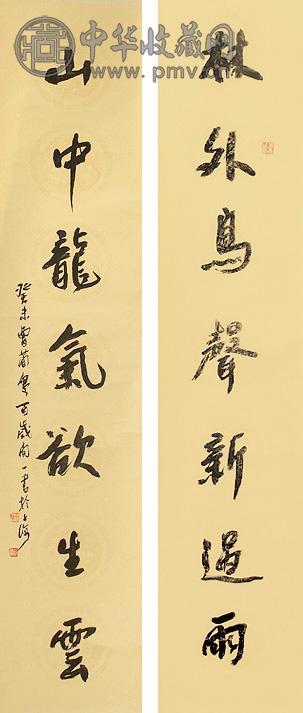 中华收藏网
www.pmv.cn
林外鳥聲新過雨
山中龍氣欲生雲
癸未曹簡樓百歲開一書於上海